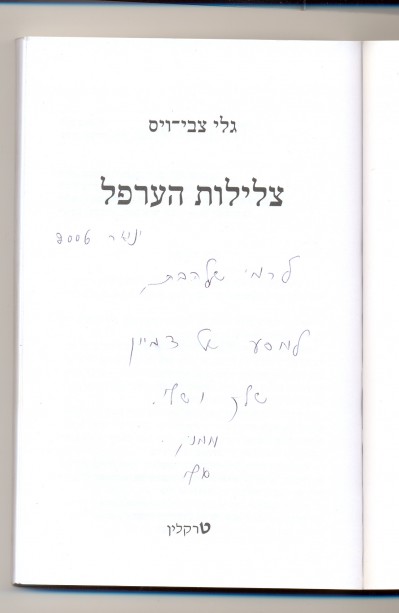 גלי צבי-ויס
צלילות הערפל
ינואר 2006
לרמי שלהבת,
למסע אל דמיון
שלך ושלי.
ממני,
גלי
טרקלין